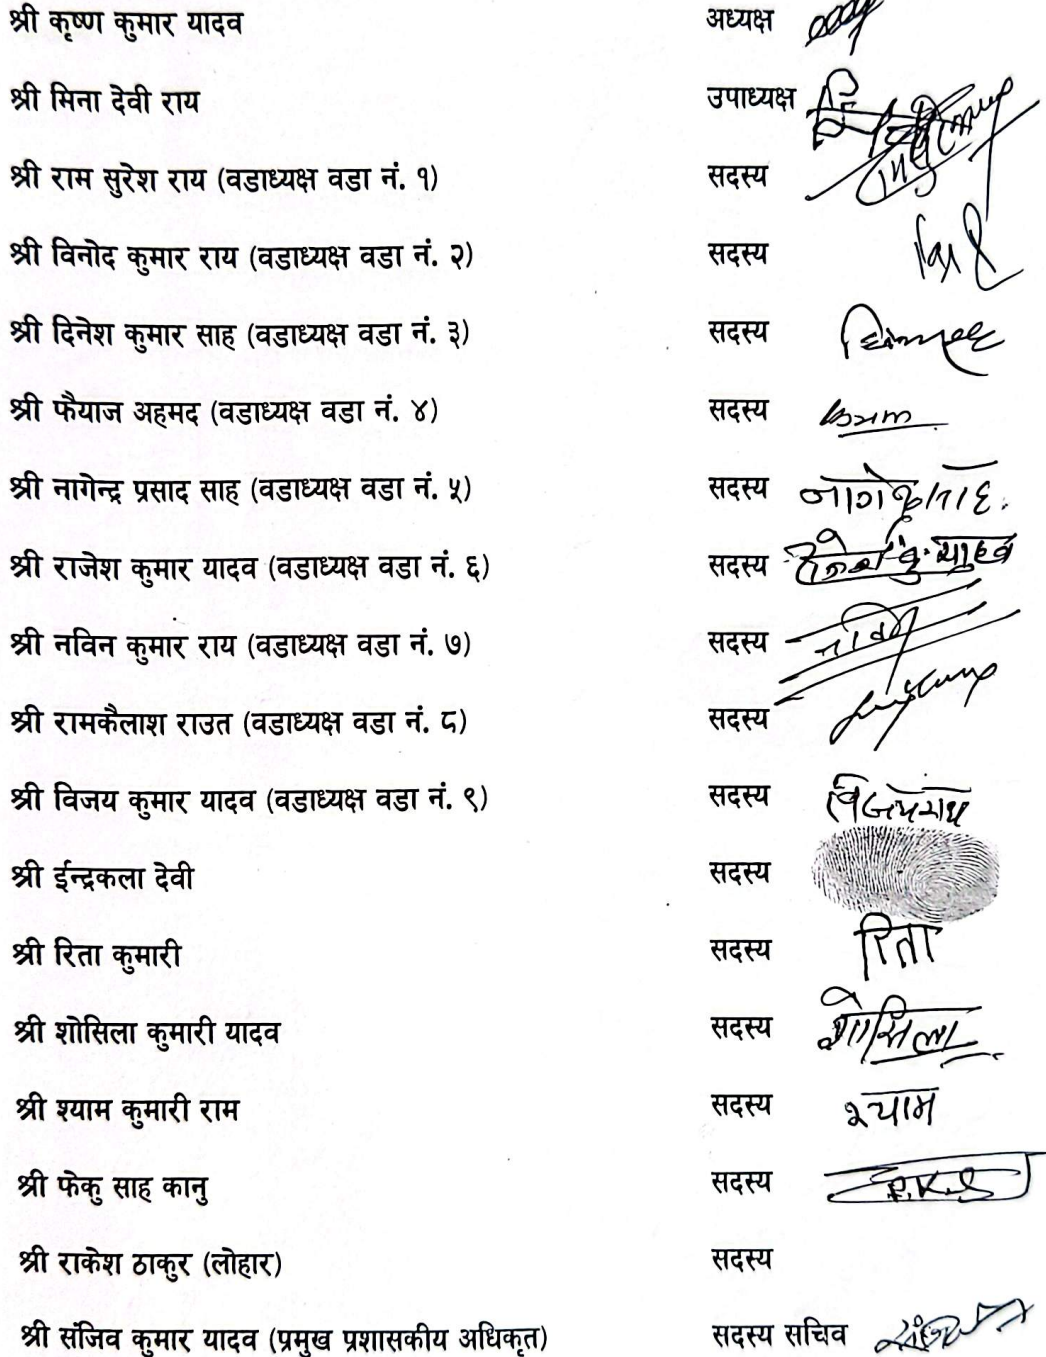 श्री कृष्ण कुमार यादव अध्यक्ष
श्री मिना देवी राय उपाध्यक्ष
श्री राम सुरेश राय (वडाध्यक्ष वडा नं. १) सदस्य
श्री विनोद कुमार राय (वडाध्यक्ष वडा नं. २) सदस्य
श्री दिनेश कुमार साह (वडाध्यक्ष वडा नं. ३) सदस्य
श्री फैयाज अहमद (वडाध्यक्ष वडा नं. ४) सदस्य
श्री नागेन्द्र प्रसाद साह (वडाध्यक्ष वडा नं. ५) सदस्य
श्री राजेश कुमार यादव (वडाध्यक्ष वडा नं. ६) सदस्य
श्री नविन कुमार राय (वडाध्यक्ष वडा नं. ७) सदस्य
श्री रामकैलाश राउत (वडाध्यक्ष वडा नं. ८) सदस्य
श्री विजय कुमार यादव (वडाध्यक्ष वडा नं. ९) सदस्य
श्री ईन्द्रकला देवी सदस्य
श्री रिता कुमारी सदस्य रिता
श्री शोसिला कुमारी यादव सदस्य शोसिला
श्री श्याम कुमारी राम सदस्य श्याम
श्री फेकु साह कानु सदस्य
श्री राकेश ठाकुर (लोहार) सदस्य
श्री संजिव कुमार यादव (प्रमुख प्रशासकीय अधिकृत) सदस्य सचिव